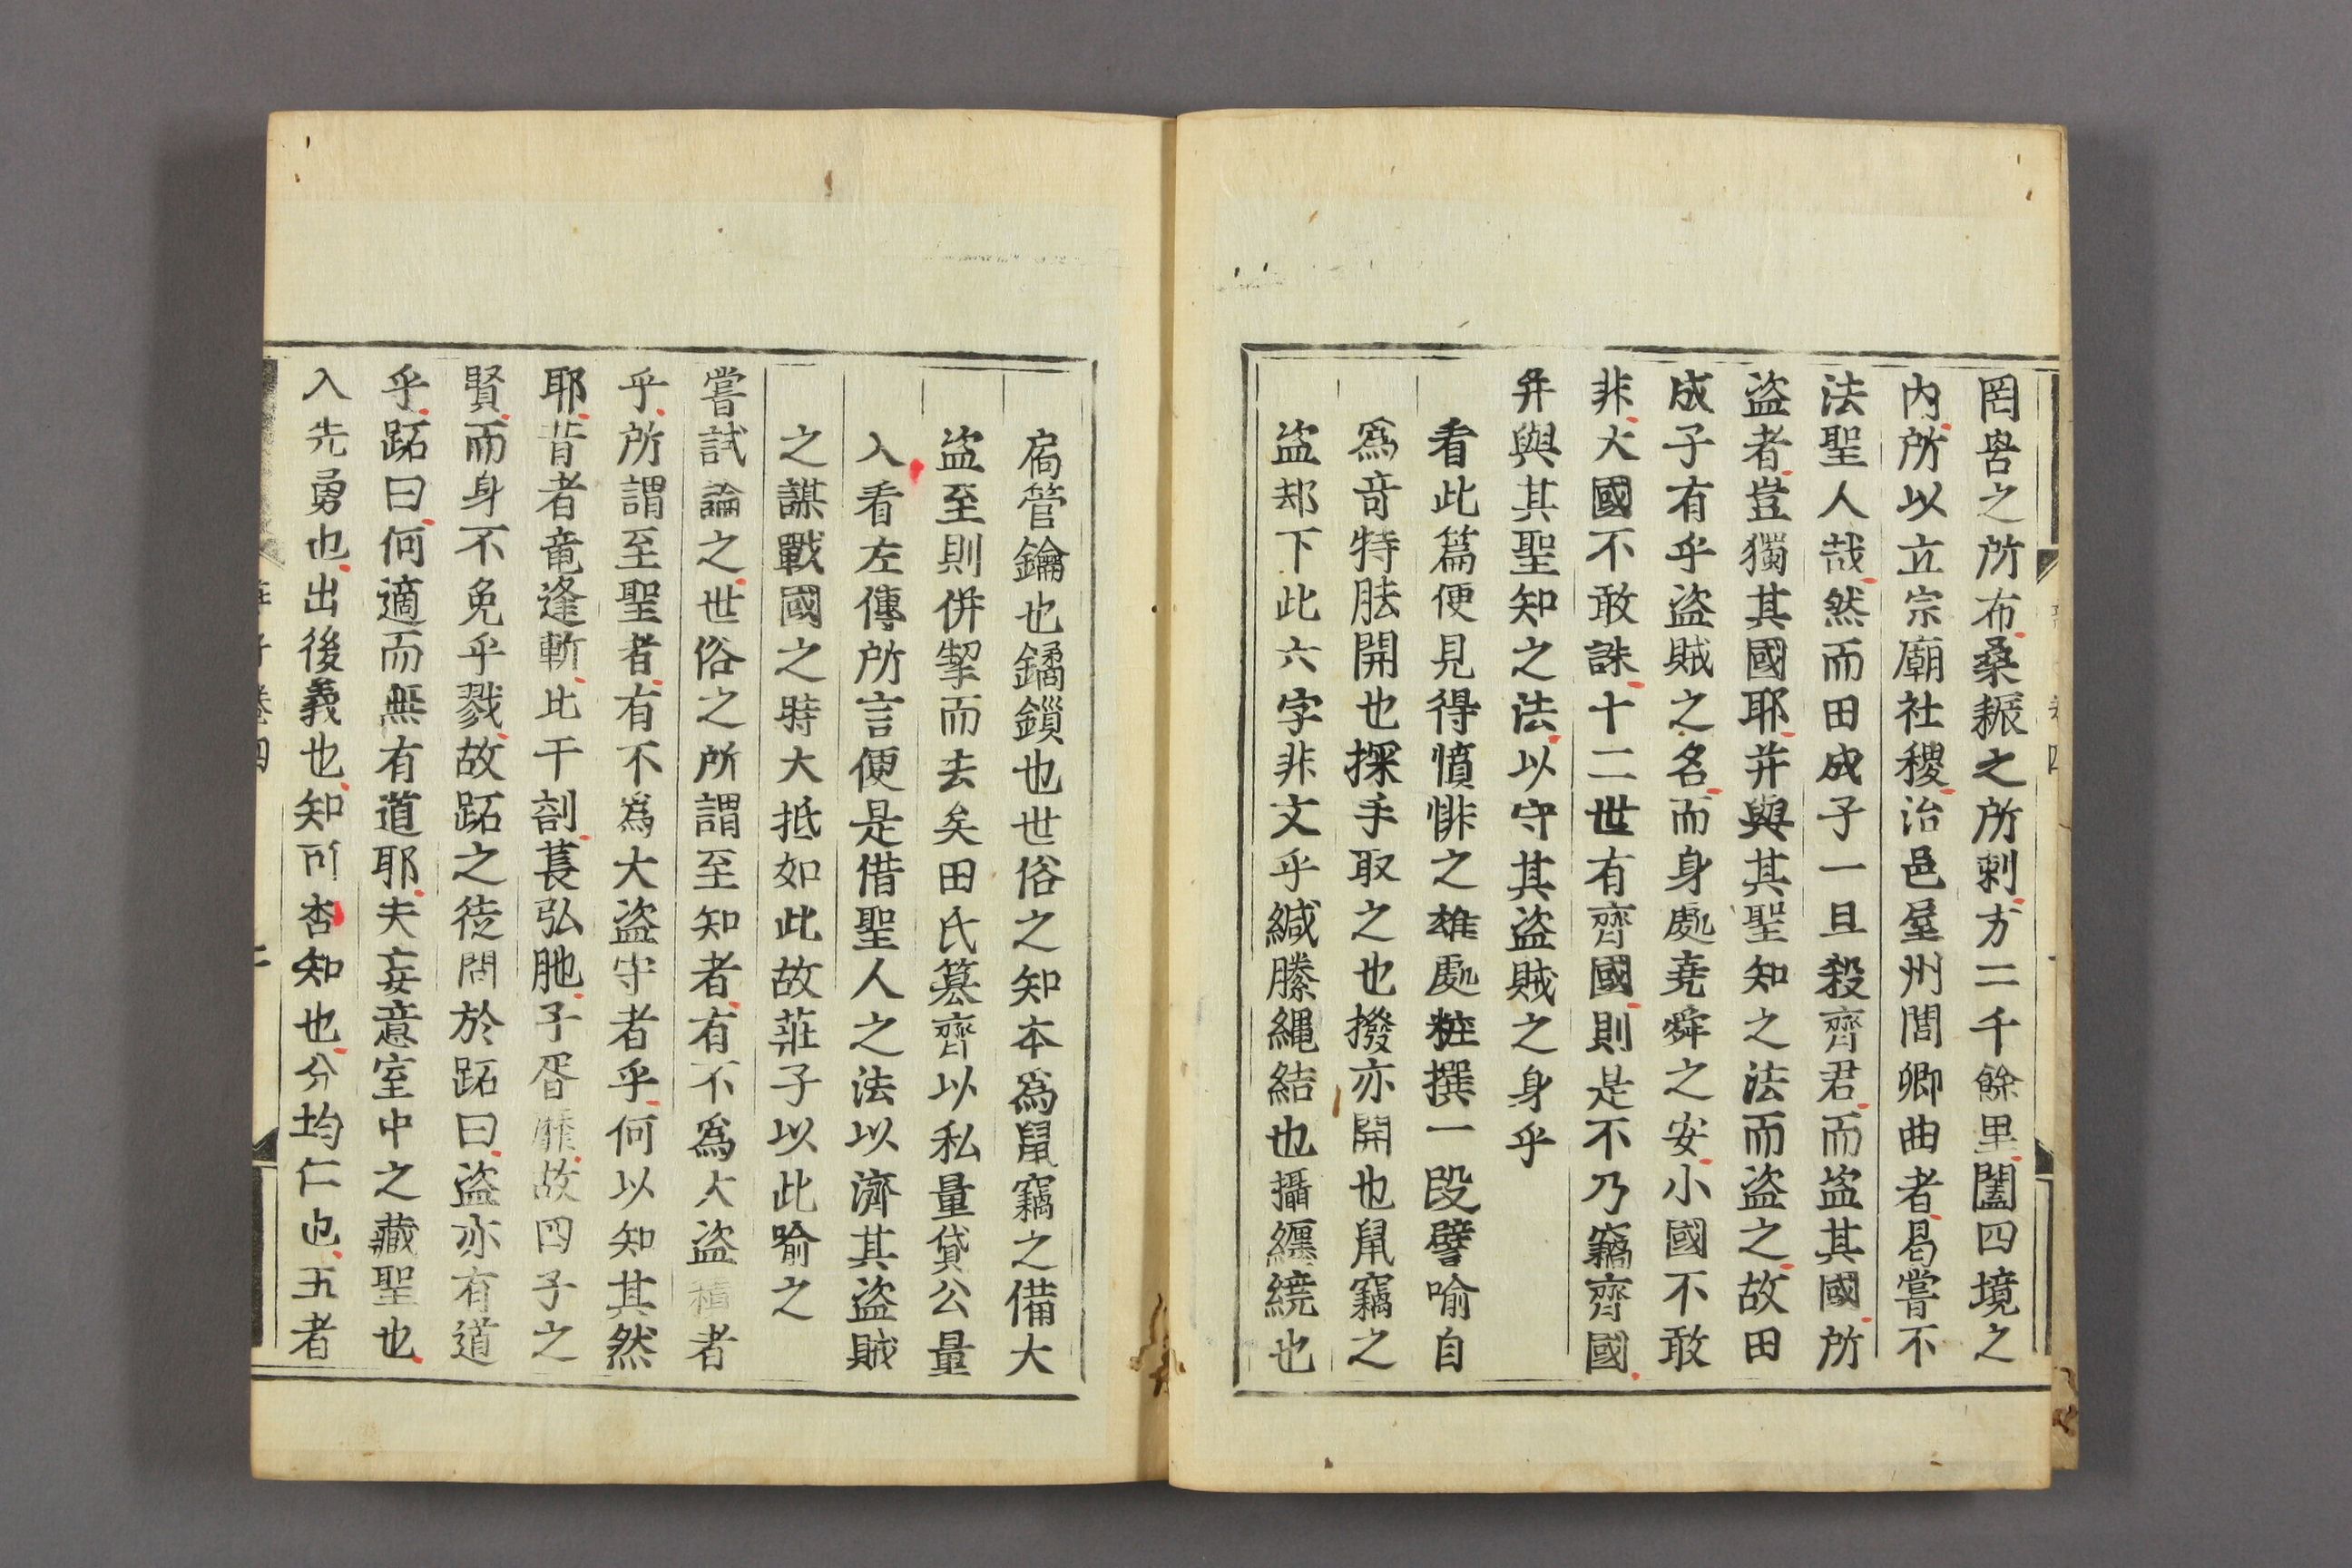 罔罟之所布桑耨之所刺方二千餘里闔四境之
内所以立宗廟社稷治邑屋州閭鄉曲者曷嘗不
法聖人哉然而田成子一旦殺齊君而盜其國所
盜者豈獨其國耶并與其聖知之法而盜之故田
成子有乎盜賊之名而身處堯舜之安小國不敢
非大國不敢誅十二世有齊國則是不乃竊齊國
并與其聖知之法以守其盜賊之身乎
看此篇便見得憤悱之雄處粧撰一段譬喻自
爲竒特胠開也探手取之也撥亦開也鼠竊之
盜却下此六字非文乎緘縢繩結也攝纏繞也
扃管鑰也鐍鎖也世俗之知本爲鼠竊之備大
盜至則併挈而去矣田氏簒齊以私量貸公量
入看左傳所言便是借聖人之法以濟其盜賊
之謀戰國之時大抵如此故莊子以此喻之
嘗試論之世俗之所謂至知者有不爲大盜積者
乎所謂至聖者有不爲大盜守者乎何以知其然
耶昔者竜逢斬比干剖萇弘胣子胥靡故四子之
賢而身不免乎戮故跖之徒問於跖曰盜亦有道
乎跖曰何適而無有道耶夫妄意室中之藏聖也
入先勇也出後義也知可否知也分均仁也五者
莊子卷四